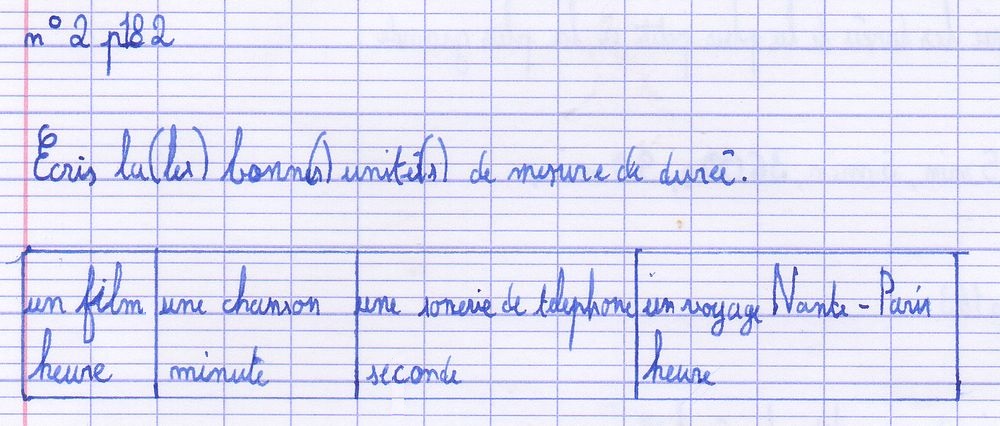 n° 2 p182
Ecris la (les) bonne(s) unité(s) de mesure de durée.
un film | une chanson | une sonerie de télephone | un voyage Nante - Paris
heure | minute | seconde | heure